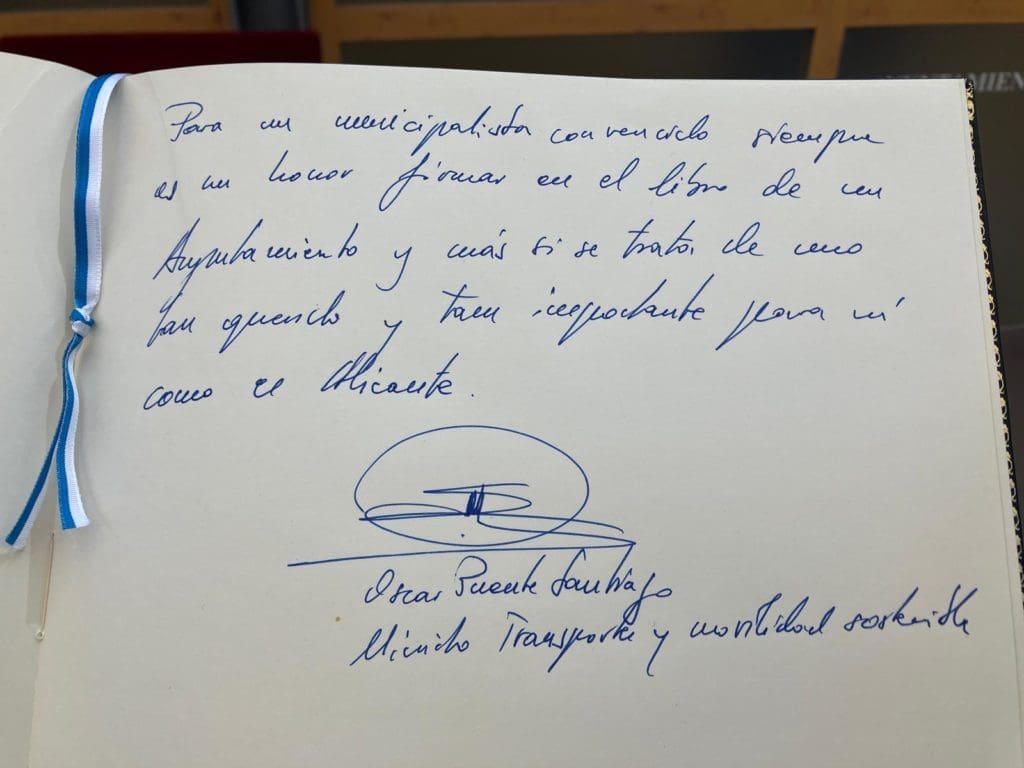 Para un municipalista convencido siempre
es un honor firmar en el libro de un
Ayuntamiento y más si se trata de uno
tan querido y tan importante para mí
como el Alicante.
Oscar Puente Santiago
Ministro Transportes y movilidad sostenible